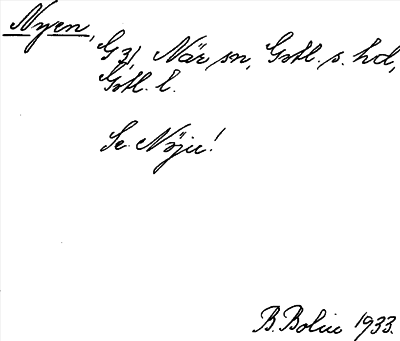 Nyen,
Gz), När sn, Gotl. s. hd,
Gotl. l.
Se Nöjie!
B. Bolin 1933.